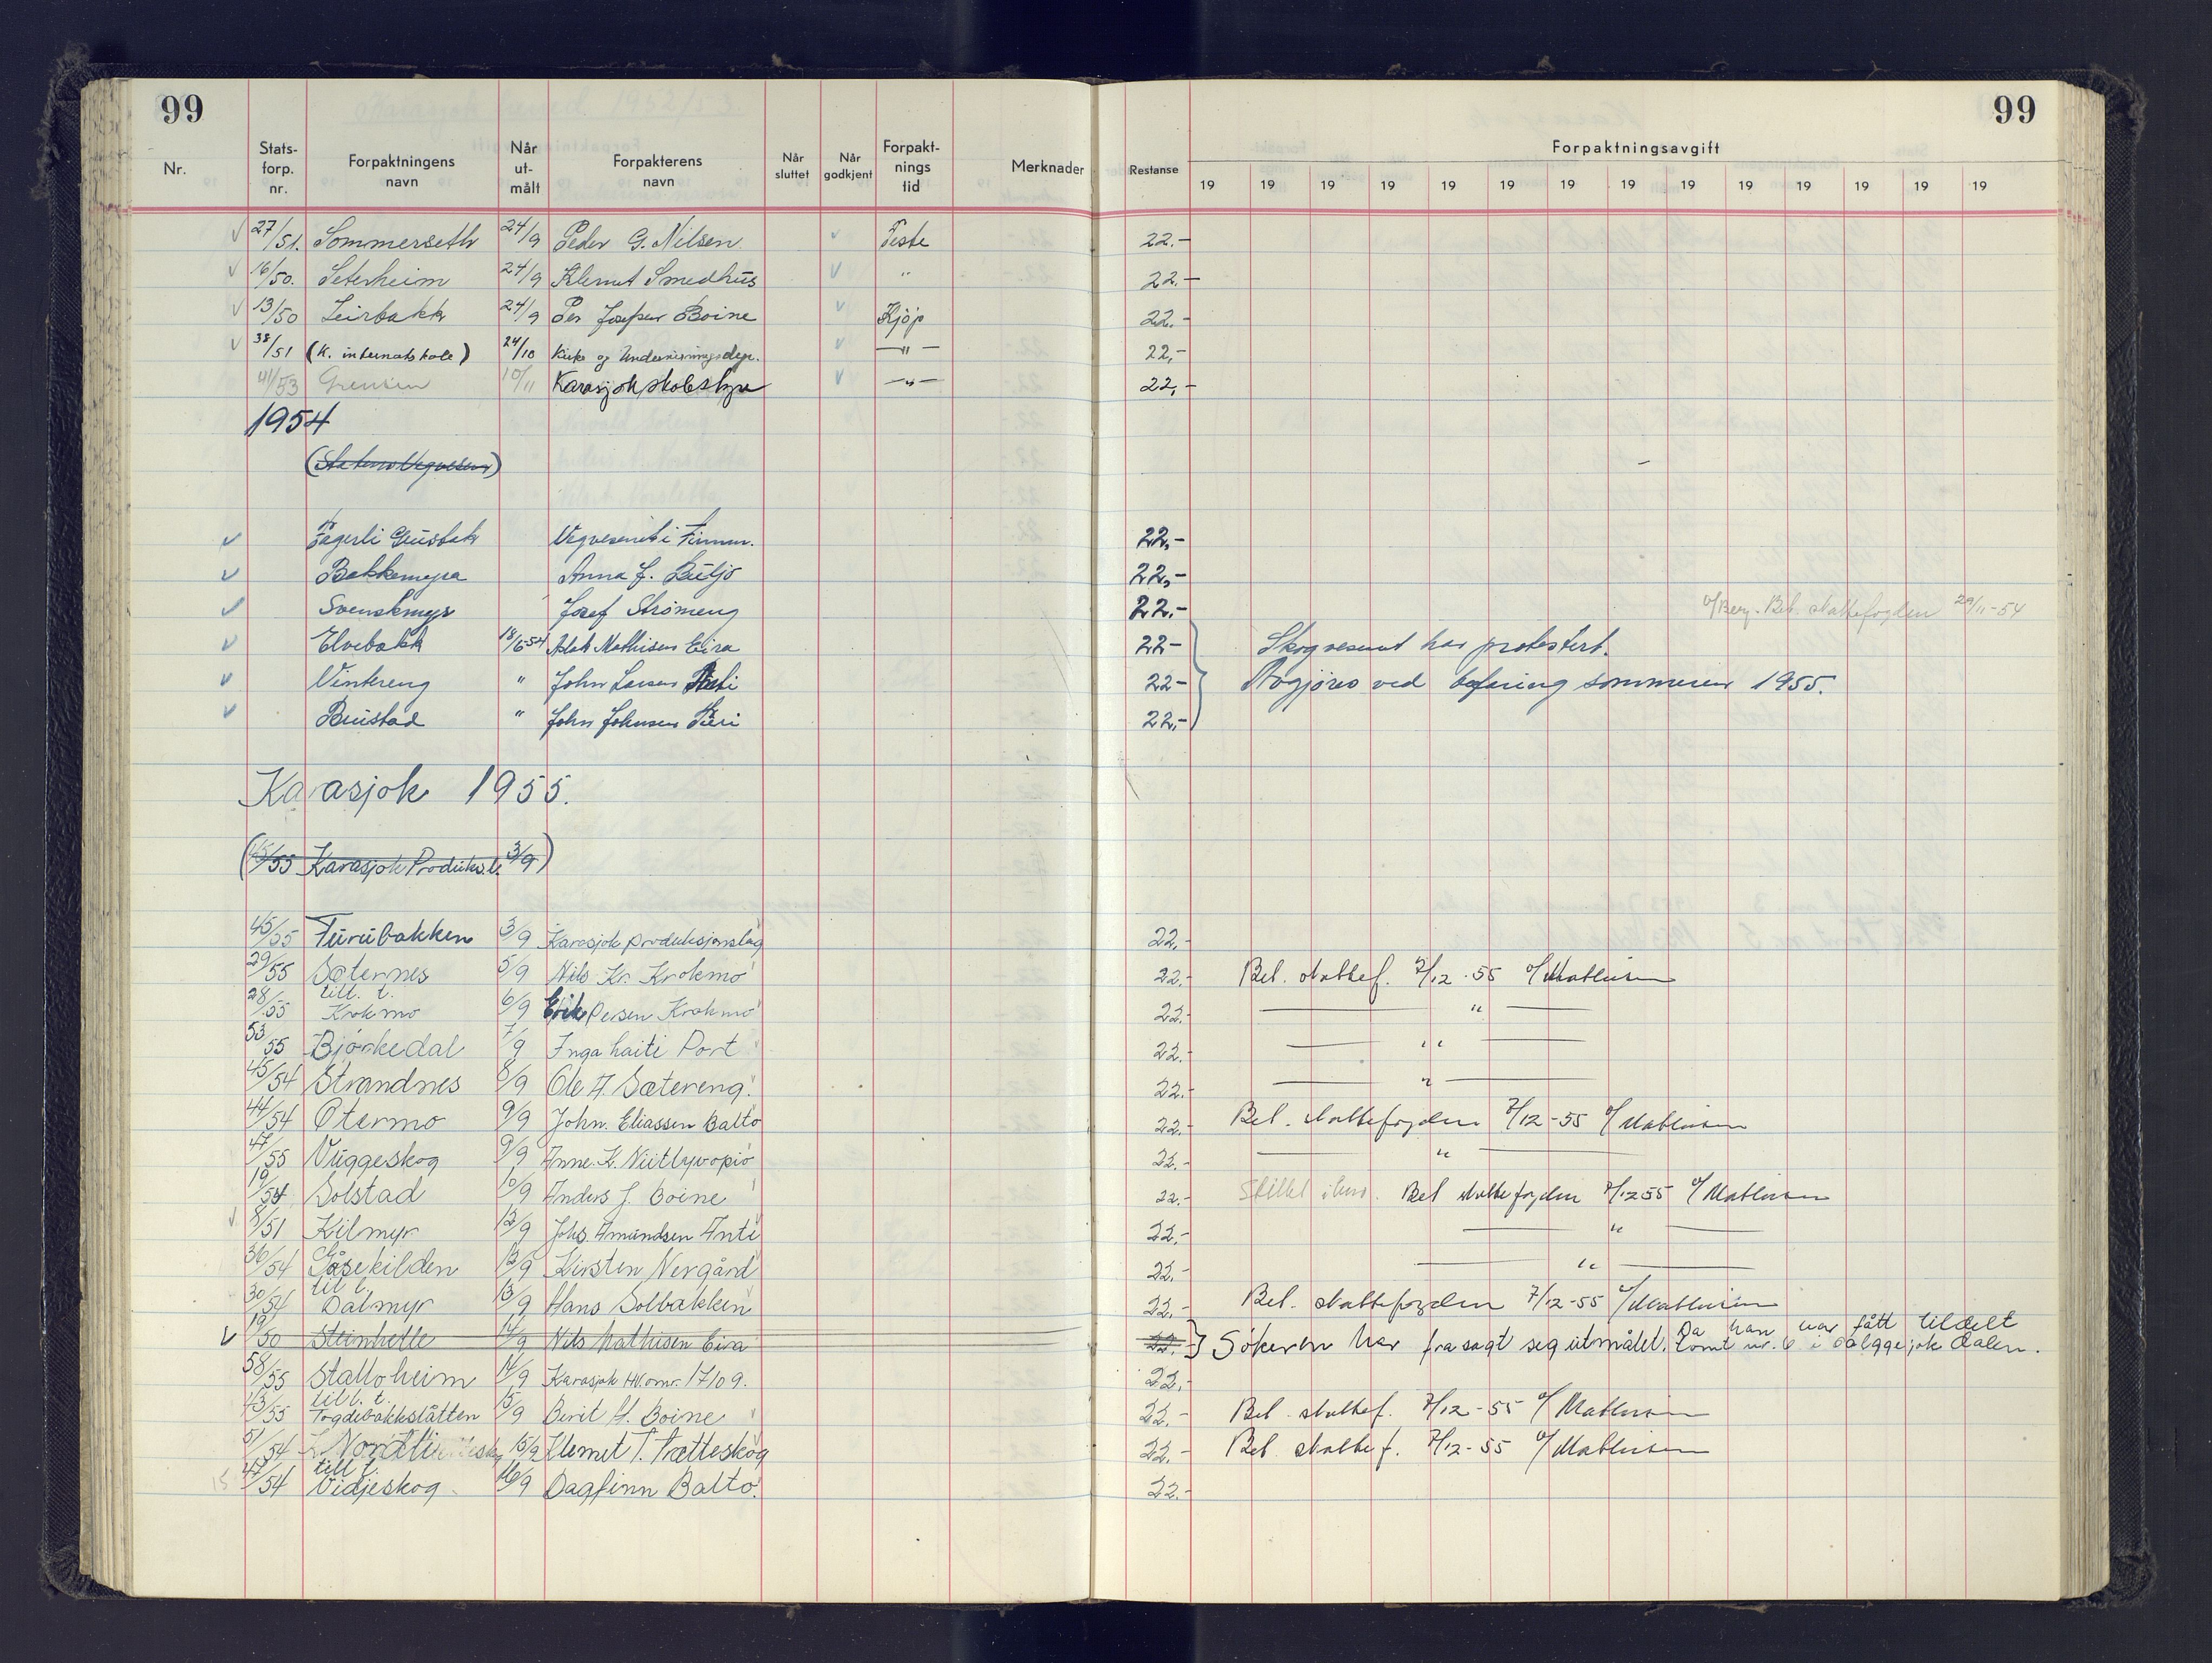 99 99
Nr. Stats-forp. nr. Forpaktningens navn Når ut-målt Forpakterens navn Når sluttet Når godkjent Forpakt-nings tid Merknader Restanse Forpaktningsavgift
19 19 19 19 19 19 19 19 19 19 19 19 19 19
27/51. Sommerseth 24/9 Peder G. Nilsen Feste 22.-
16/50. Seterheim 24/9 Klemet Smedhus " 22.-
13/50 Leirbakk 24/9 Per Josefsen Boine Kjöp 22.-
38/51 (K. internatskole) 24/10 Kirke og Undervisningsdep. -"- 22,-
41/53 Grensen 10/11 Karasjok skolestyre -"- 22,-
1954
(Statens Vegvesen)
Fagerli Grustak Vegvesenet i Finnm. 22,-
Bakkemyra Anna J. Buljo 22,-
Svenskmyr Josef Strömeng 22.- Bet. skattefogden 29/11-54
Elvebakk 18/6-54 Aslak Mathisen Eira 22- Skogvesenet har protestert.
Vintereng " John Larsen 22- Avgjöres ved befaring sommeren 1955.
Brustad " John Johnsen 22,-
Karasjok 1955.
(45/55 Karasjok Produks.l. 3/9)
45/55 Furubakken 3/9 Karasjok produksjonslag 22.-
29/55 Sæternes 5/9 Nils Kr. Krokmo 22.- Bet. skattef. 7/12-55 o/Mathisen
28/55 till. t. Krokmo 6/9 Erik Persen Krokmo 22.- — " —
53/55 Björkedal 7/9 Inga Haiti Port 22.- — " —
45/54 Strandnes 8/9 Ole A. Sætereng. 22.- — " —
44/54 Otermo 9/9 John. Eliassen Balto 22.- Bet. skattefogden 7/12-55 o/Mathisen
47/55 Vuggeskog 9/9 Anne. K. Niitlyvopio 22.- — " —
19/54 Solstad 10/9 Anders J. Boine 22.- Bet skattefogden 7/12 55 o/Mathisen
8/51 Kilmyr 12/9 Johs. Amundsen Anti 22,- — " —
36/54 Gåsekilden 12/9 Kirsten Nergård 22.- — " —
30/54 til l. Dalmyr 13/9 Hans Solbakken 22.- Bet. skattefogden 7/12-55 o/Mathisen
19/50 Steinhelle 14/9 Nils Mathisen Eira 22.- Sökeren har frasagt seg utmålet. Da han har fått tildelt tomt nr. 6 i dalen.
58/55 Stalloheim 14/9 Karasjok HV.omr. 17109. 22.-
43/55 till. t. Togdebakkslåtten 15/9 Berit H. Boine 22.- Bet. skattef. 7/12-55 o/Mathisen
51/54 Nordli 15/9 Klemet T. Trætteskog 22.- Bet skattef. 7/12-55 o/Mathisen
47/54 till t. Vidjeskog 16/9 Dagfinn Balto. 22.-